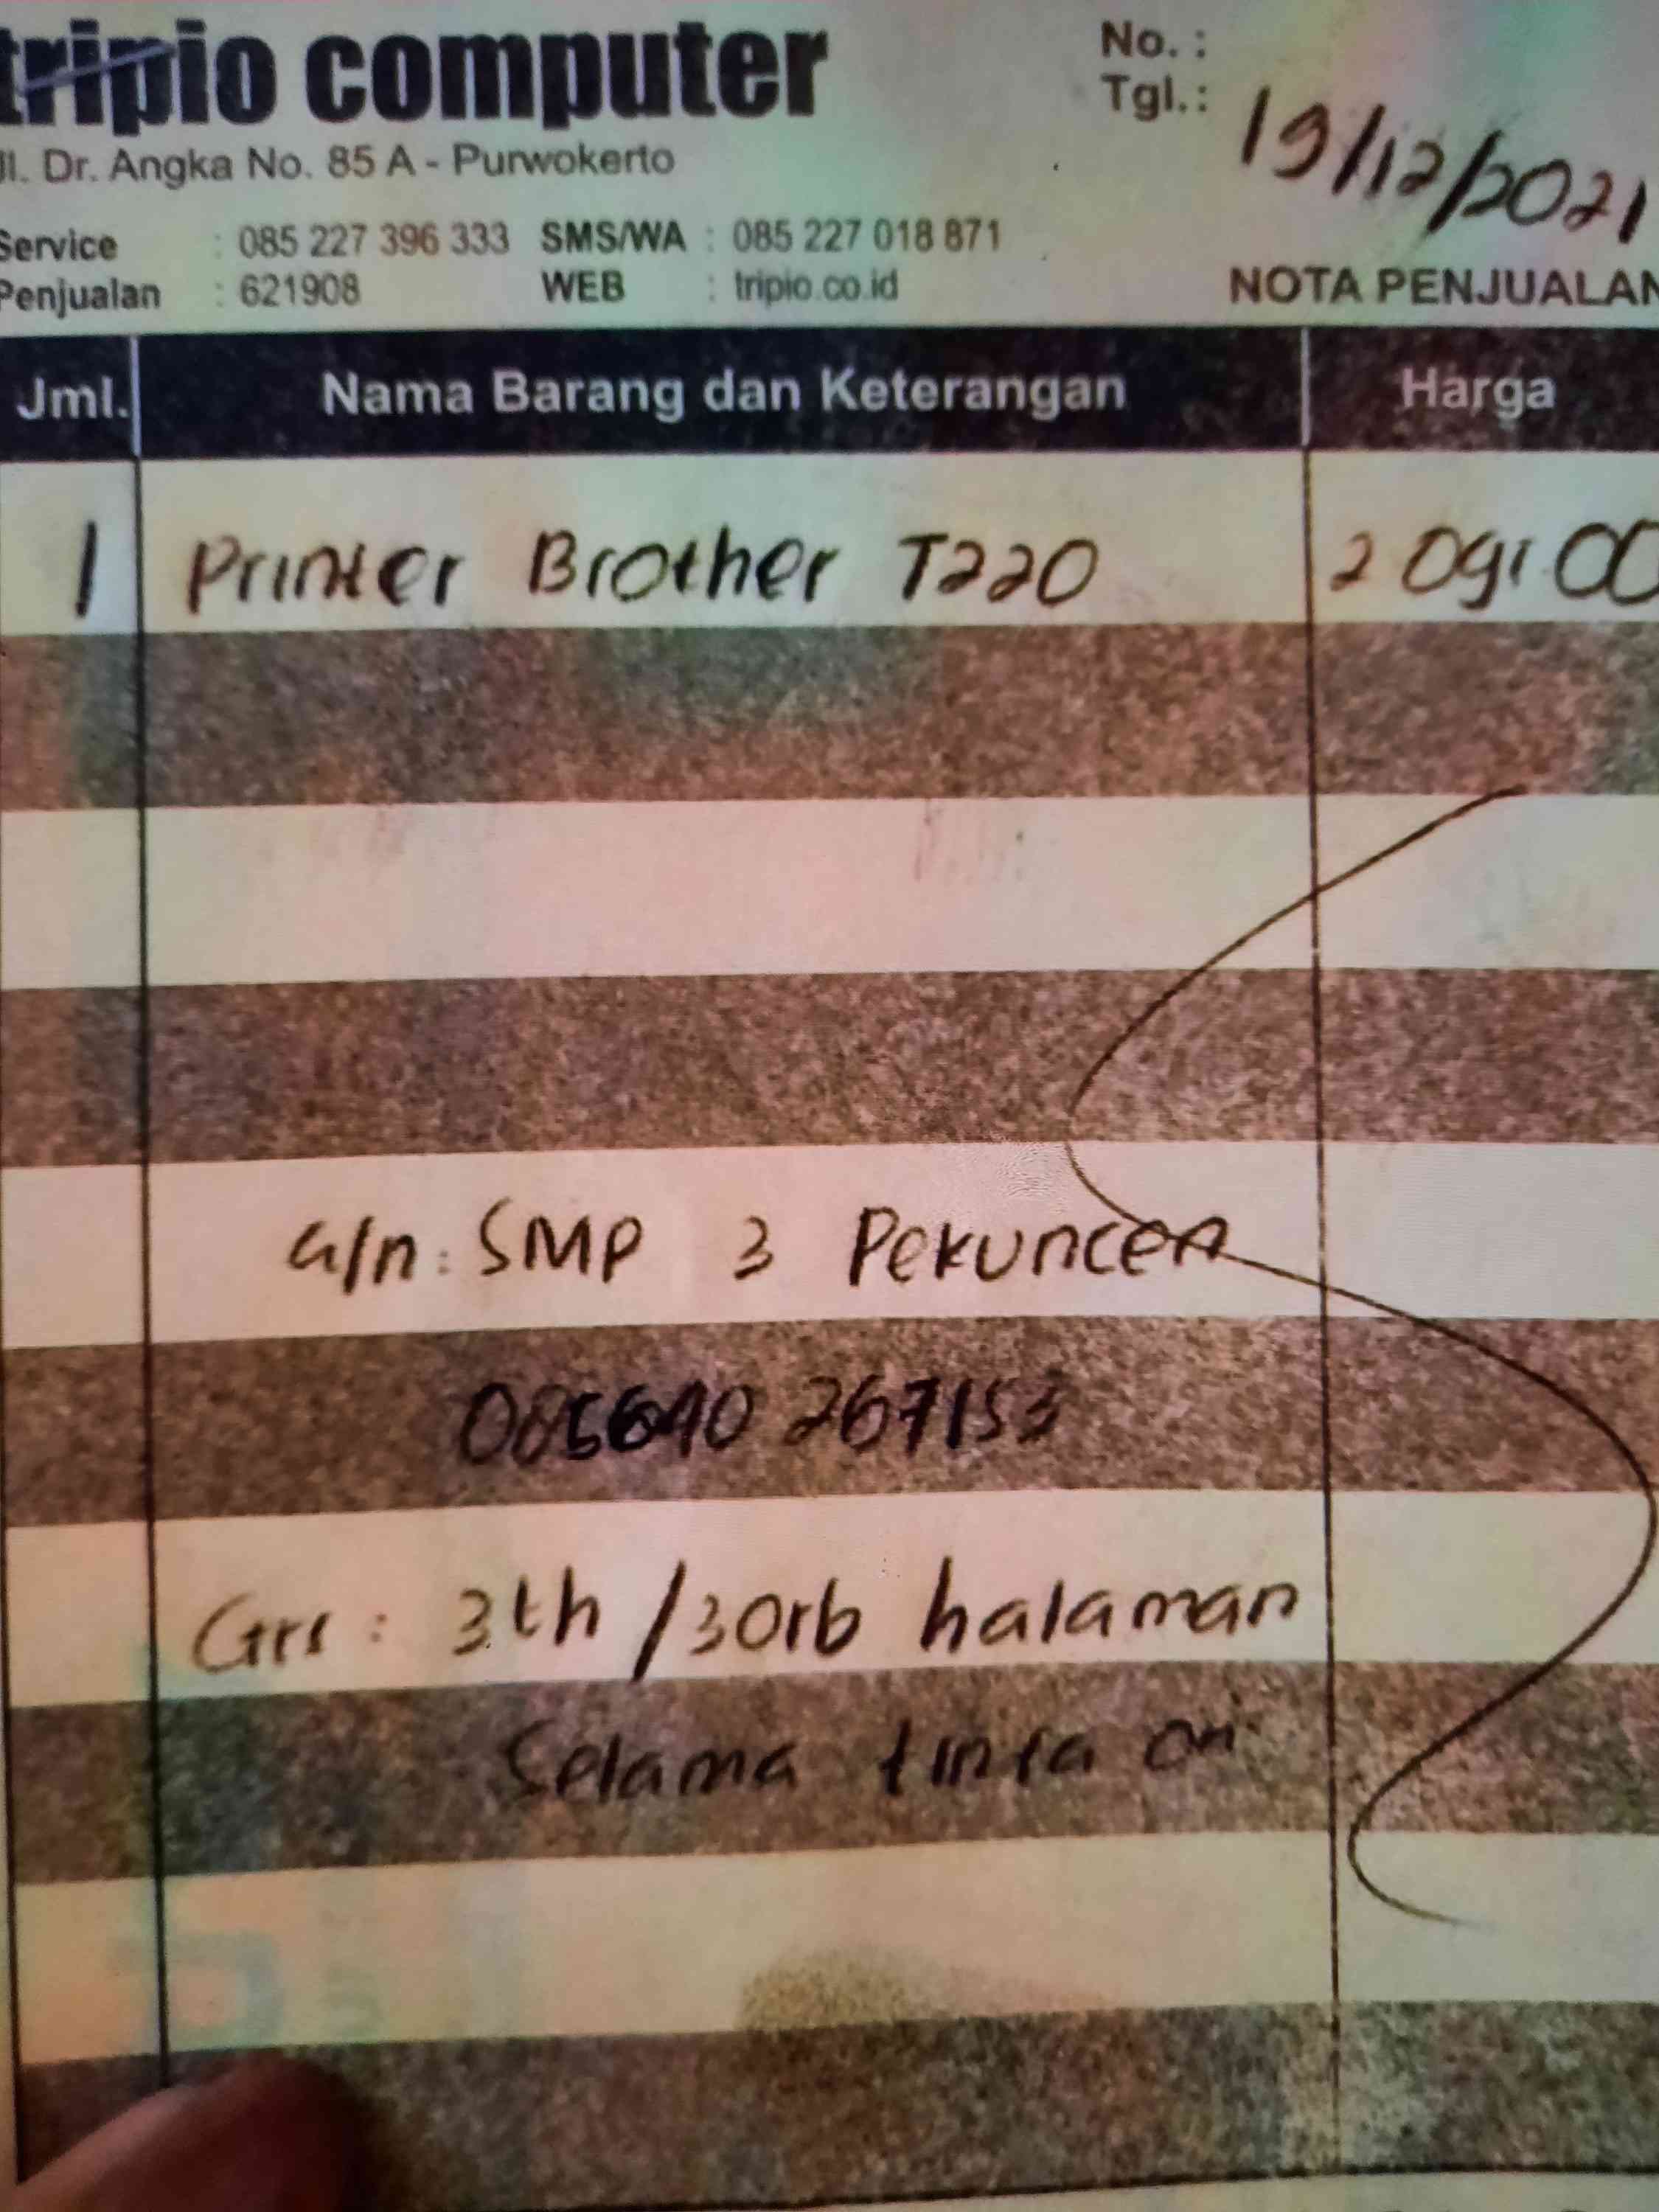 tripio computer
No. :
Tgl. : 19/12/2021
Jl. Dr. Angka No. 85 A - Purwokerto
Service : 085 227 396 333 SMS/WA : 085 227 018 871
Penjualan : 621908 WEB : tripio.co.id
NOTA PENJUALAN
Jml. Nama Barang dan Keterangan Harga
1 Printer Brother T220
a/n : SMP 3 Pekuncen
085640 267153
Grs : 3th / 30rb halaman
Selama tinta ori